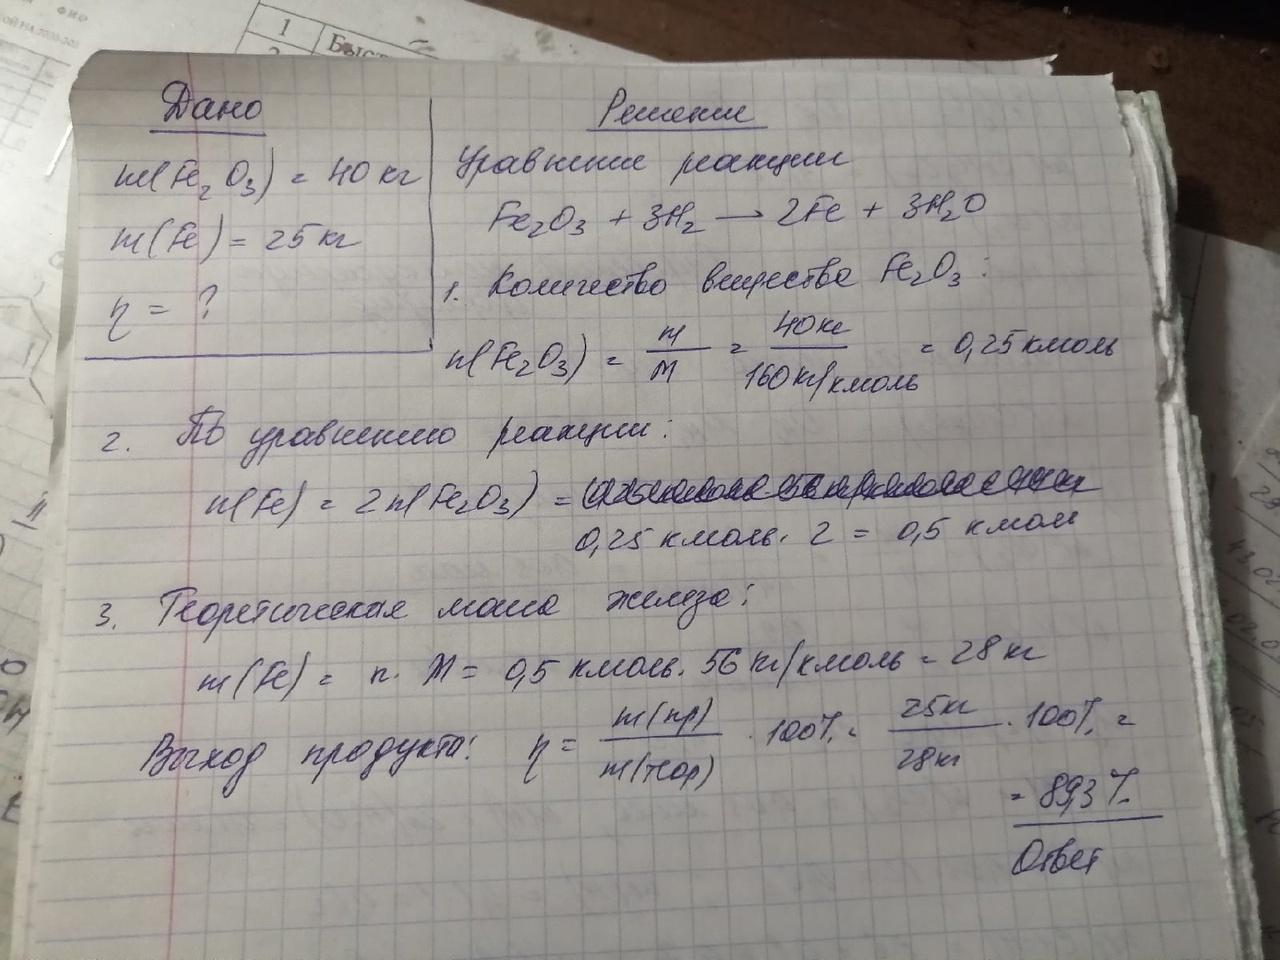 ФИО
1
Быст
Дано
m(Fe₂O₃) = 40 кг
m(Fe) = 25 кг
η = ?
Решение
Уравнение реакции
Fe₂O₃ + 3H₂ → 2Fe + 3H₂O
1. Количество вещества Fe₂O₃:
n(Fe₂O₃) = m/M = 40кг/160кг/кмоль = 0,25 кмоль
2. По уравнению реакции:
n(Fe) = 2n(Fe₂O₃) =
0,25 кмоль · 2 = 0,5 кмоль
3. Теоретическая масса железа:
m(Fe) = n · M = 0,5 кмоль · 56 кг/кмоль = 28 кг
Выход продукта: η = m(пр)/m(теор) · 100% = 25кг/28кг · 100% =
= 89,3%
Ответ